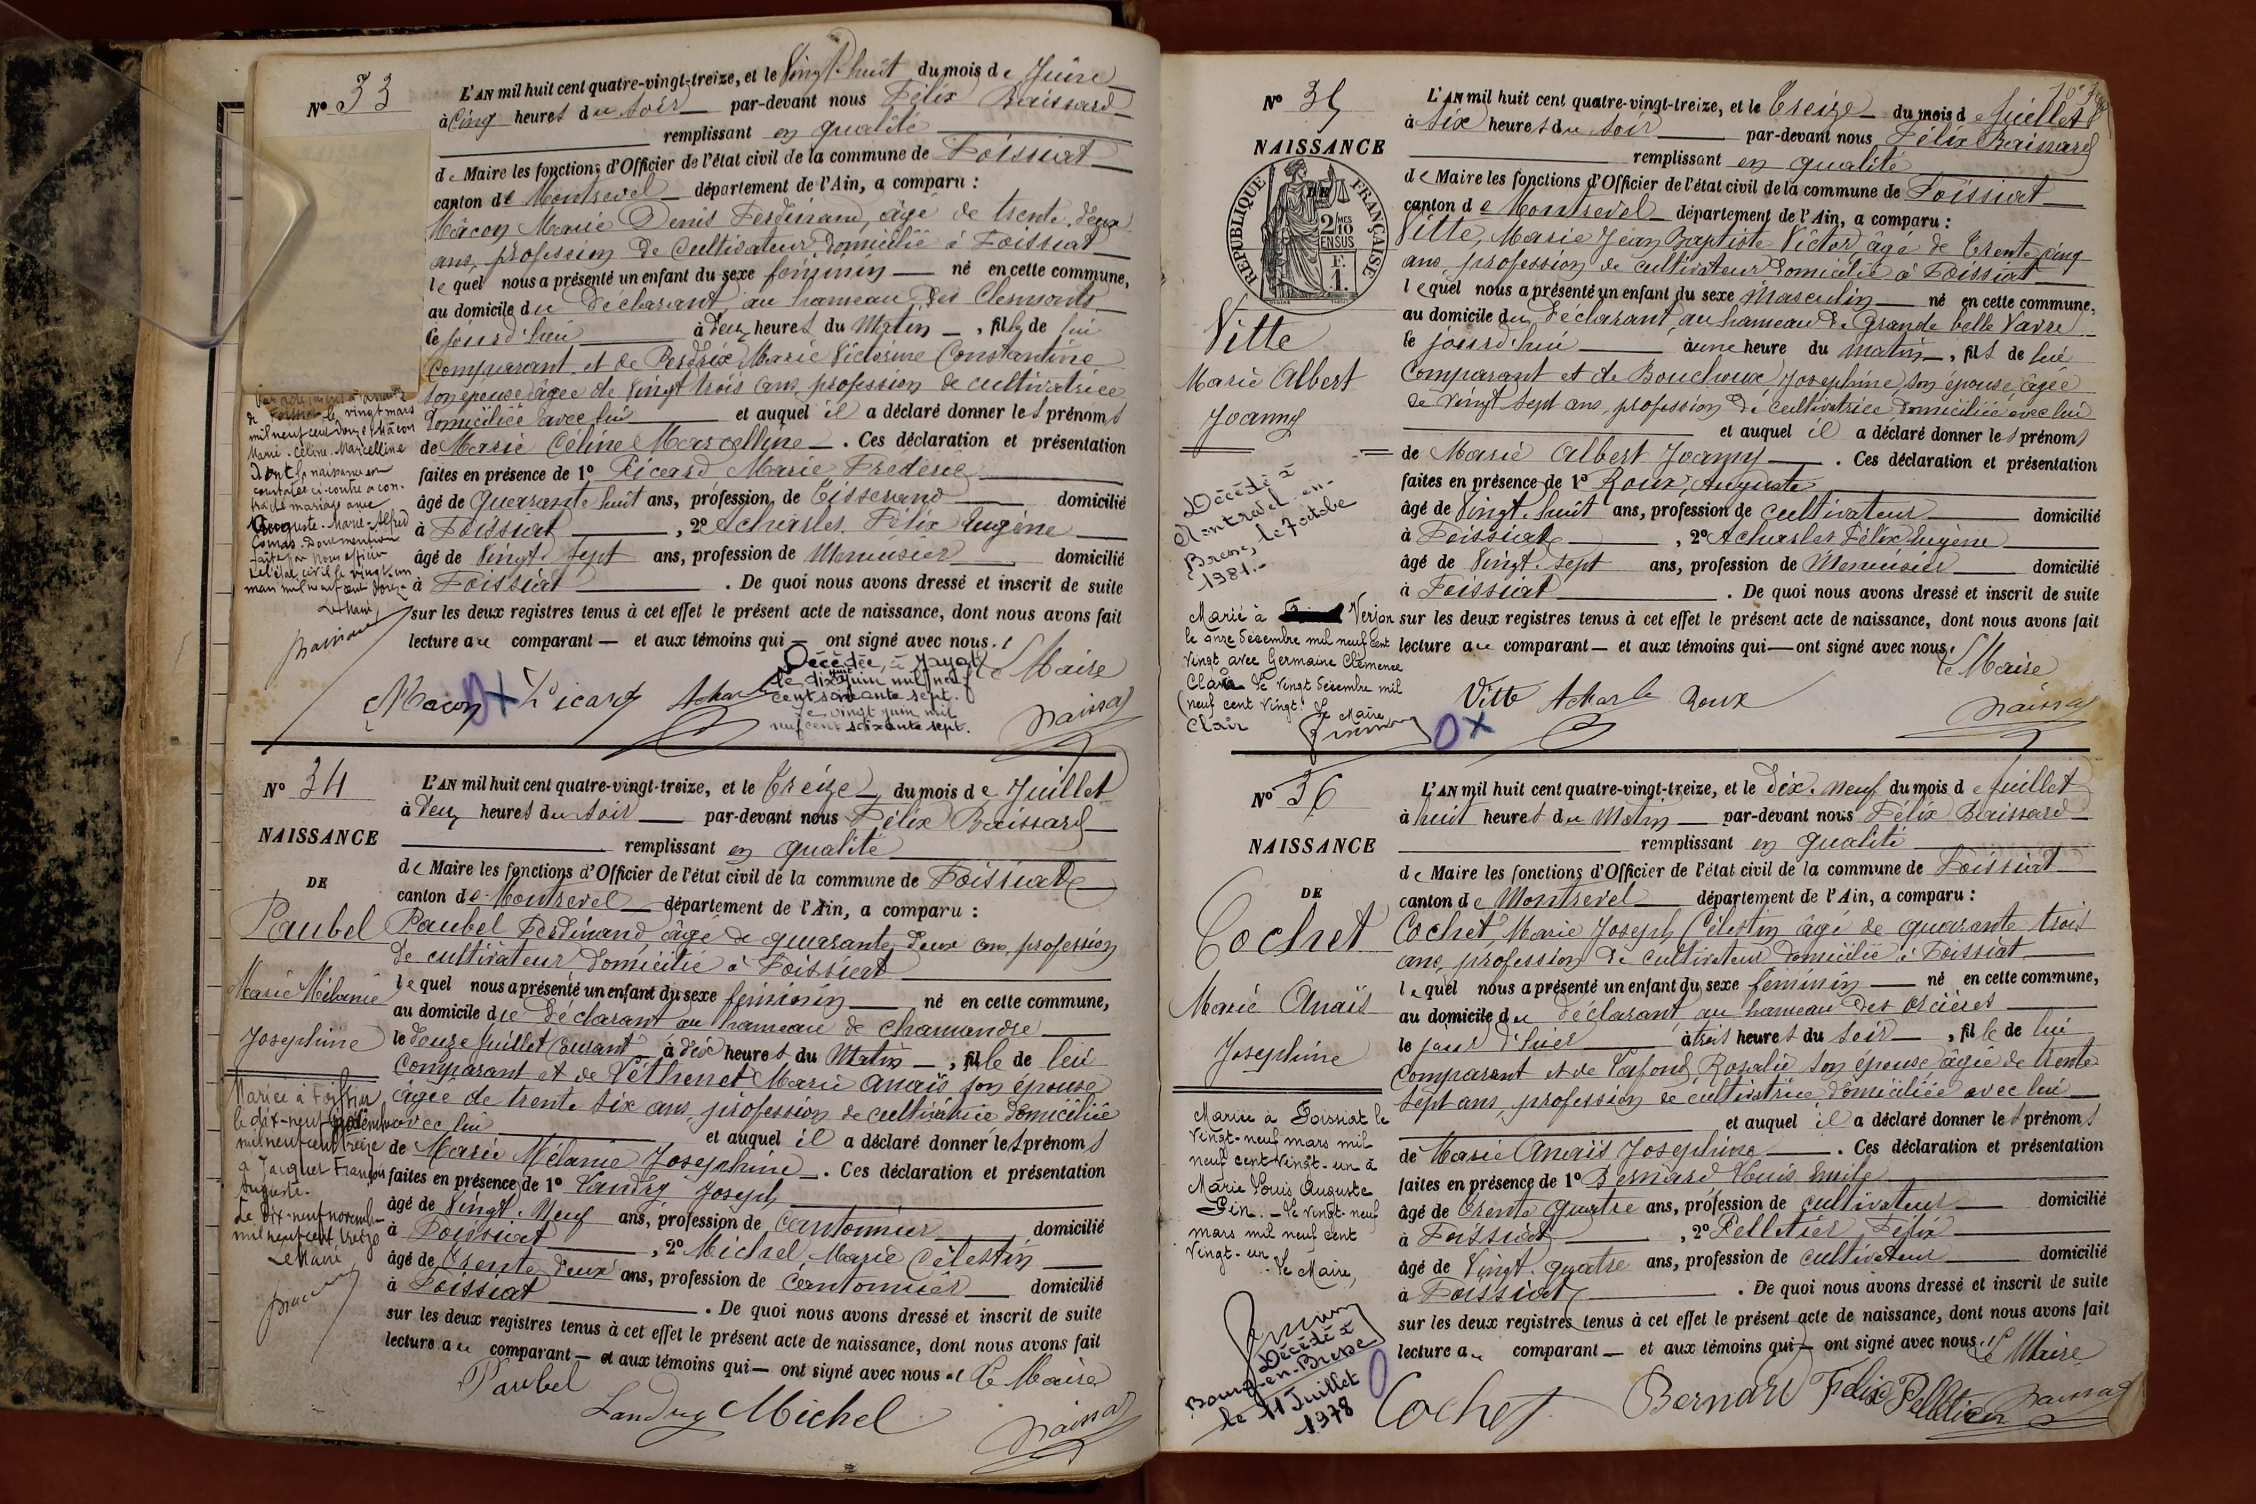 N° 33
L'AN mil huit cent quatre-vingt-treize, et le Vingt huit du mois de Juin
à Cinq heures du soir par-devant nous Félix Baissard
remplissant en qualité
de Maire les fonctions d'Officier de l'état civil de la commune de Foissiat
canton de Montrevel département de l'Ain, a comparu :
Mâcon Marie Denis Ferdinand, âgé de trente deux
ans, profession de cultivateur domicilié à Foissiat
lequel nous a présenté un enfant du sexe féminin né en cette commune,
au domicile du déclarant, au hameau des Clermonts
le jourd'hui à deux heures du Matin, fille de lui
comparant et de Perdrix Marie Victorine Constantine
son épouse âgée de vingt trois ans, profession de cultivatrice
domiciliée avec lui et auquel il a déclaré donner les prénoms
de Marie Céline Marcelline. Ces déclaration et présentation
faites en présence de 1° Picard Marie Frédéric
âgé de quarante huit ans, profession de Tisserand domicilié
à Foissiat, 2° Acharles Félix Eugène
âgé de vingt sept ans, profession de Menuisier domicilié
à Foissiat. De quoi nous avons dressé et inscrit de suite
sur les deux registres tenus à cet effet le présent acte de naissance, dont nous avons fait
lecture au comparant et aux témoins qui ont signé avec nous.
Le Maire
Mâcon Picard Acharles Baissard
de Foissiat le vingt mars
mil neuf cent douze Mâcon
Marie. Céline. Marcelline
dont la naissance est
constatée ci-contre a con-
tracté mariage avec
Auguste. Marie. Alfred
Comas. Dont mention
faite par Nous officier
de l'état civil le vingt-un
mars mil neuf cent douze
Le Maire,
Décédée à Jayat
le dix huit juin mil neuf
cent soixante sept.
Le vingt juin mil
neuf cent soixante sept.
N° 34
NAISSANCE
DE
Paubel
Marie Mélanie
Joséphine
L'AN mil huit cent quatre-vingt-treize, et le Treize du mois de Juillet
à deux heures du soir par-devant nous Félix Baissard
remplissant en qualité
de Maire les fonctions d'Officier de l'état civil de la commune de Foissiat
canton de Montrevel département de l'Ain, a comparu :
Paubel Ferdinand âgé de quarante deux ans, profession
de cultivateur domicilié à Foissiat
lequel nous a présenté un enfant du sexe féminin né en cette commune,
au domicile du déclarant au hameau de Chamandre
le douze Juillet courant à dix heures du Matin, fille de lui
comparant et de Péthenet Marie Anaïs son épouse
âgée de trente six ans, profession de cultivatrice domiciliée
avec lui et auquel il a déclaré donner les prénoms
de Marie Mélanie Joséphine. Ces déclaration et présentation
faites en présence de 1° Landry Joseph
âgé de Vingt. Neuf ans, profession de cantonnier domicilié
à Foissiat, 2° Michel Marie Célestin
âgé de Trente deux ans, profession de Cantonnier domicilié
à Foissiat. De quoi nous avons dressé et inscrit de suite
sur les deux registres tenus à cet effet le présent acte de naissance, dont nous avons fait
lecture au comparant et aux témoins qui ont signé avec nous. Le Maire
Paubel Landry Michel Baissard
Mariée à Foissiat
le dix-neuf novembre
mil neuf cent treize
à Jacquet François
Auguste.
Le dix-neuf novembre
mil neuf cent treize
Le Maire,
N° 35
NAISSANCE
DE
RÉPUBLIQUE FRANÇAISE
2/10 MES
EN SUS
F. 1.
Vitte
Marie Albert
Joanny
L'AN mil huit cent quatre-vingt-treize, et le Treize du mois de Juillet
à Six heures du soir par-devant nous Félix Baissard
remplissant en qualité
de Maire les fonctions d'Officier de l'état civil de la commune de Foissiat
canton de Montrevel département de l'Ain, a comparu :
Vitte, Marie Jean Baptiste Victor âgé de Trente cinq
ans, profession de cultivateur domicilié à Foissiat
lequel nous a présenté un enfant du sexe Masculin né en cette commune,
au domicile du déclarant, au hameau de Grande belle Vavre
le jourd'hui à une heure du matin, fils de lui
comparant et de Bouchoux, Joséphine, son épouse, âgée
de Vingt sept ans, profession de cultivatrice domiciliée avec lui
et auquel il a déclaré donner les prénoms
de Marie Albert Joanny. Ces déclaration et présentation
faites en présence de 1° Roux, Auguste
âgé de Vingt. huit ans, profession de cultivateur domicilié
à Foissiat, 2° Acharles Félix Eugène
âgé de Vingt. sept ans, profession de Menuisier domicilié
à Foissiat. De quoi nous avons dressé et inscrit de suite
sur les deux registres tenus à cet effet le présent acte de naissance, dont nous avons fait
lecture au comparant et aux témoins qui ont signé avec nous.
Le Maire
Vitte Acharles Roux Baissard
Décédé à
Montrevel-en-
Bresse, le 7 octobre
1981.-
Marié à Verjon
le onze décembre mil neuf cent
vingt avec Germaine Clémence
Clair Le vingt décembre mil
neuf cent vingt.
Le Maire
Clair
N° 36
NAISSANCE
DE
Cochet
Marie Anaïs
Joséphine
L'AN mil huit cent quatre-vingt-treize, et le Dix. Neuf du mois de Juillet
à huit heures du Matin par-devant nous Félix Baissard
remplissant en qualité
de Maire les fonctions d'Officier de l'état civil de la commune de Foissiat
canton de Montrevel département de l'Ain, a comparu :
Cochet Marie Joseph Célestin âgé de quarante trois
ans, profession de cultivateur domicilié à Foissiat
lequel nous a présenté un enfant du sexe féminin né en cette commune,
au domicile du déclarant, au hameau des Orcières
le jour d'hier à trois heures du soir, fille de lui
comparant et de Lafond, Rosalie son épouse âgée de trente
sept ans, profession de cultivatrice domiciliée avec lui
et auquel il a déclaré donner les prénoms
de Marie Anaïs Joséphine. Ces déclaration et présentation
faites en présence de 1° Bernard Louis Emile
âgé de Trente quatre ans, profession de cultivateur domicilié
à Foissiat, 2° Pelletier Félix
âgé de Vingt. quatre ans, profession de cultivateur domicilié
à Foissiat. De quoi nous avons dressé et inscrit de suite
sur les deux registres tenus à cet effet le présent acte de naissance, dont nous avons fait
lecture au comparant et aux témoins qui ont signé avec nous. Le Maire
Cochet Bernard Félix Pelletier Baissard
Mariée à Foissiat le
vingt-neuf mars mil
neuf cent vingt-un à
Marie Louis Auguste
Pin. - Le vingt-neuf
mars mil neuf cent
vingt-un.
Le Maire,
Décédé à
Bourg-en-Bresse
le 11 Juillet
1978